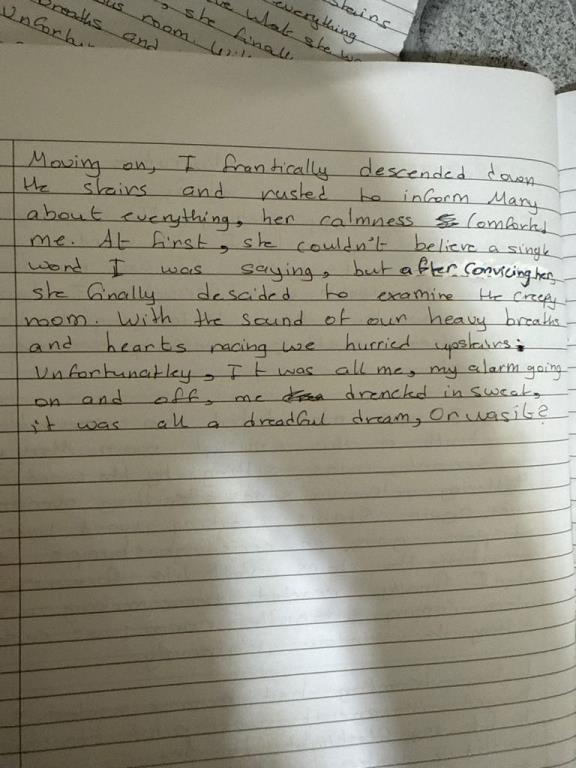 stains
everything
the what she w
us room, she finall
breaths and room. With
Unfortun
Moving on, I frantically descended down
the stairs and rusted to inform Mary
about everything, her calmness comforted
me. At first, she couldn't believe a single
word I was saying, but after convicing her,
she finally descided to examine the creepy
room. With the sound of our heavy breaths
and hearts racing we hurried upstairs.
Unfortunatley, It was all me, my alarm going
on and off, me drencked in sweat,
it was all a dreadful dream, Or was it?